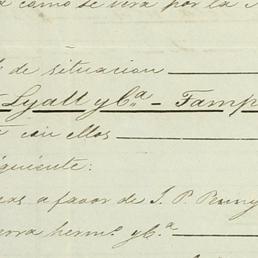 como se vera por la
de situacion
Lyall y Ca. - Tamp
con ellos
iguiente:
a favor de J. P.
erra herms. y Ca.